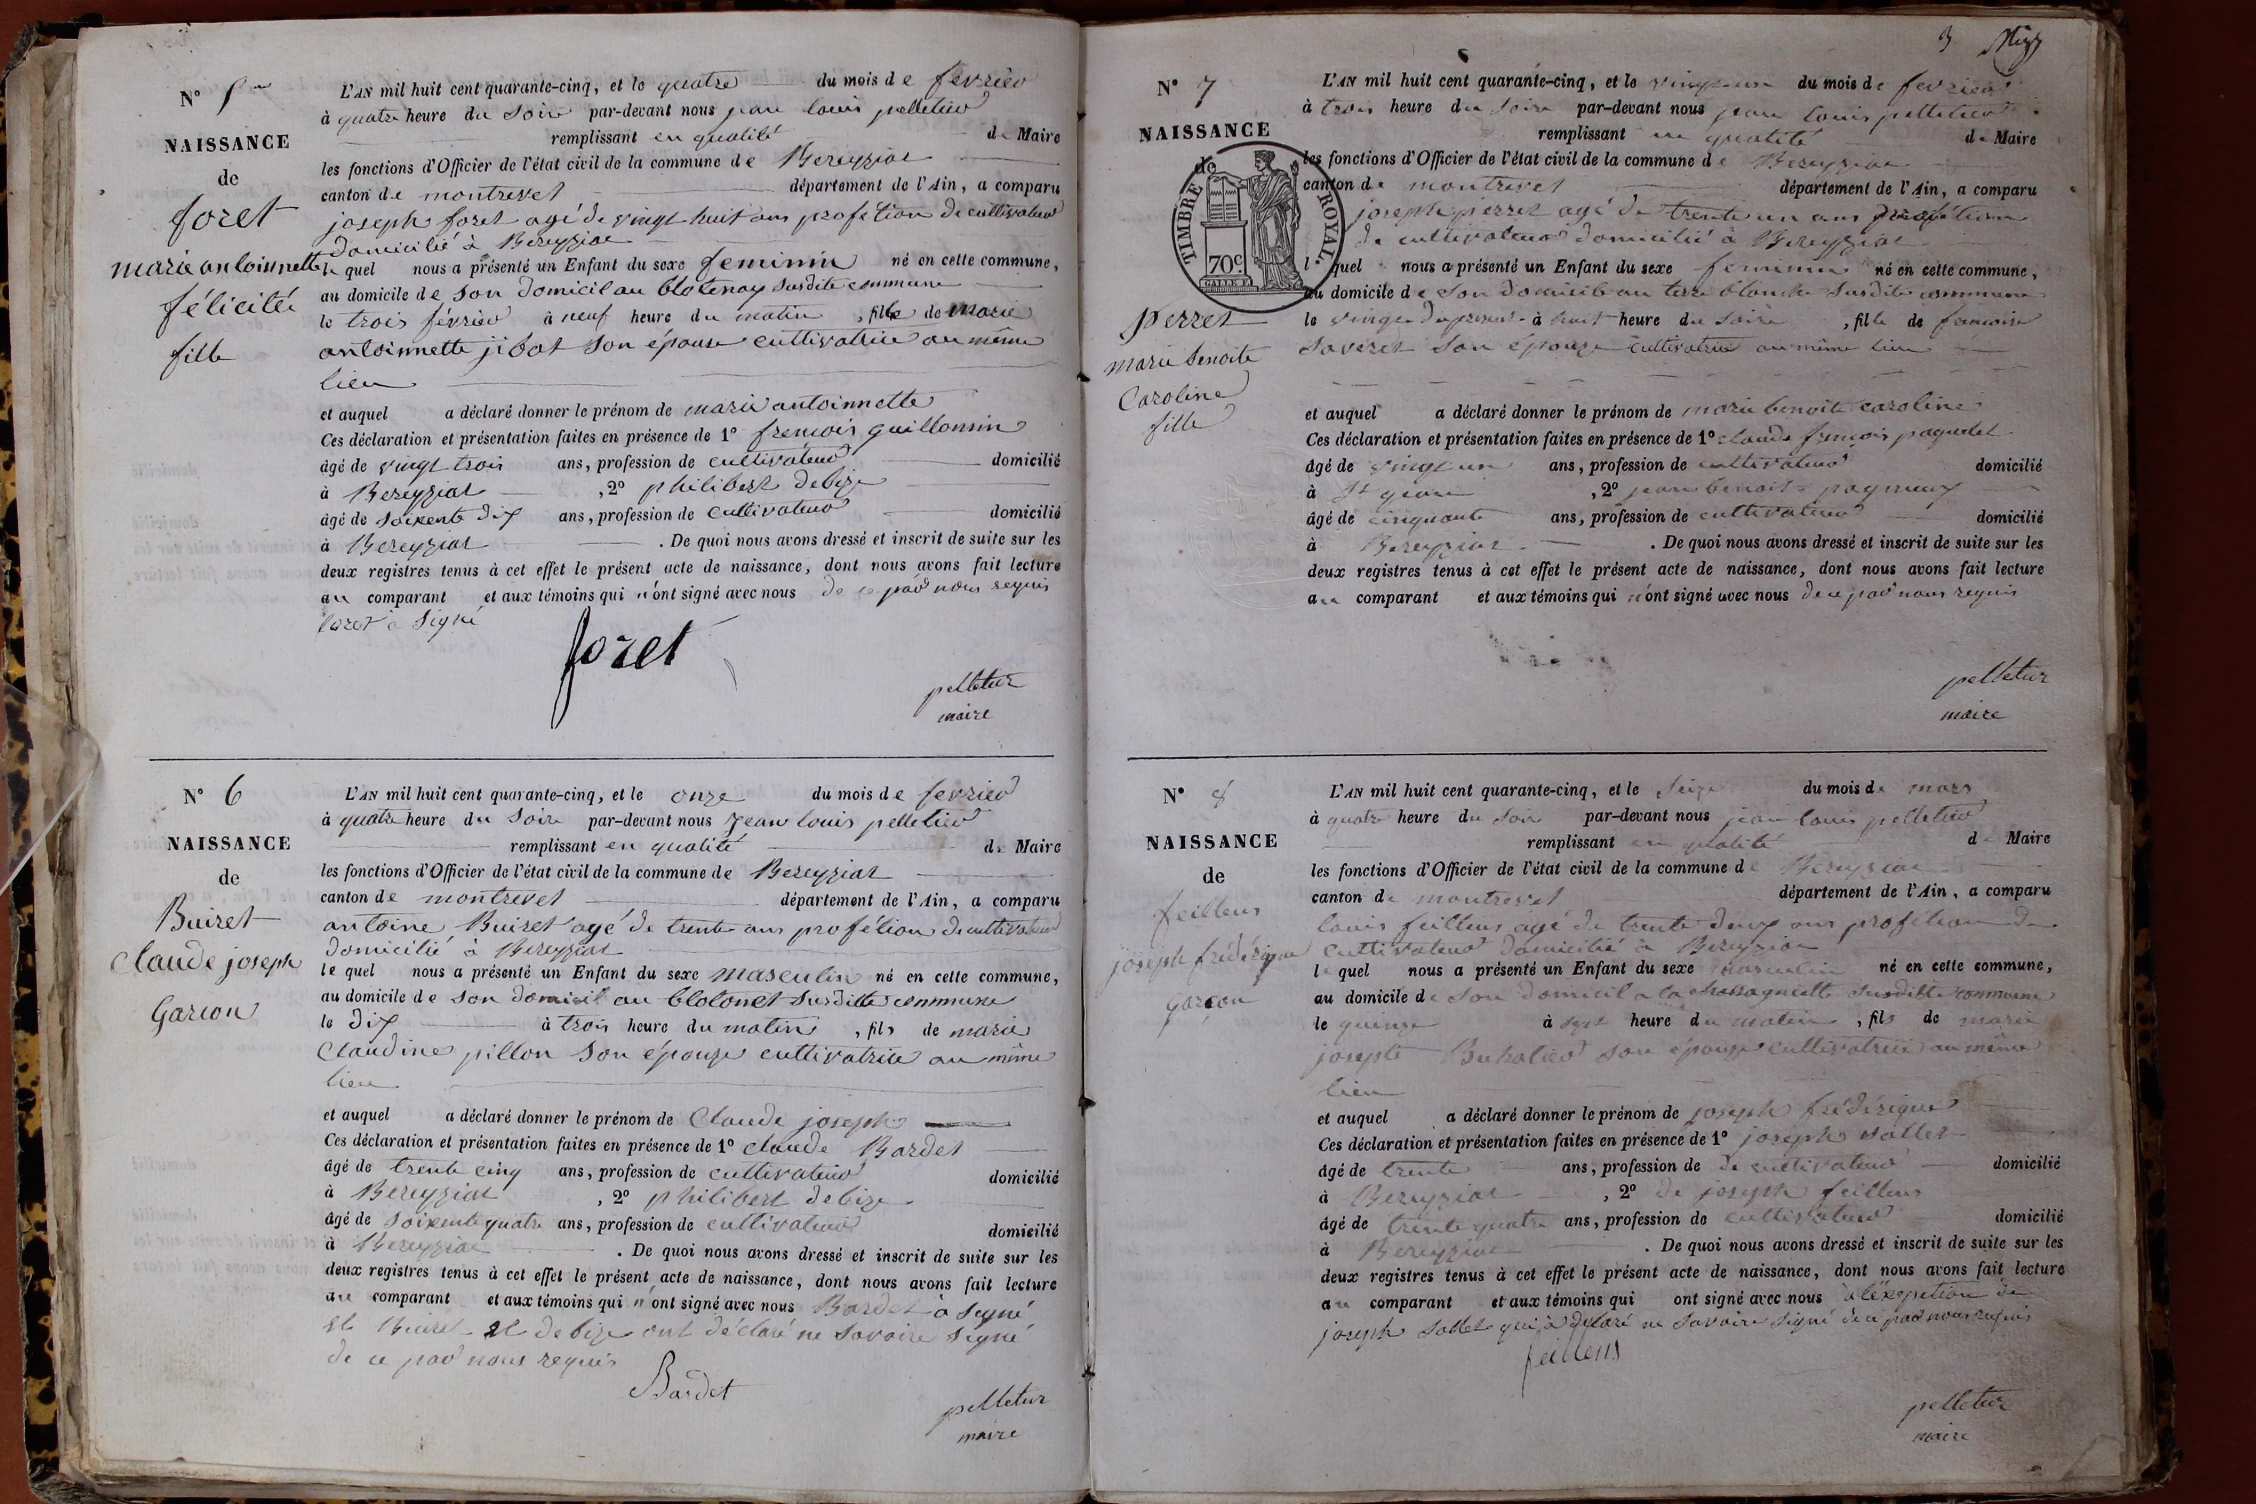 N° 5
NAISSANCE
de
foret
marie antoinnette
félicité
fille
L'AN mil huit cent quarante-cinq, et le quatre du mois de fevrier
à quatre heure du soire par-devant nous jean louis pelletier
remplissant en qualité de Maire
les fonctions d'Officier de l'état civil de la commune de Bereyziat
canton de montrevel département de l'Ain, a comparu
joseph foret agé de vingt huit ans profétion de cultivateur
domicilié à Bereyziat
le quel nous a présenté un Enfant du sexe feminin né en cette commune,
au domicile de son domicil au blotenay susdite commune
le trois février à neuf heure du matin, fille de marie
antoinnette jibot son épouse cultivatrice au même
lieu
et auquel a déclaré donner le prénom de marie antoinnette
Ces déclaration et présentation faites en présence de 1° frencois guillomin
âgé de vingt trois ans, profession de cultivateur domicilié
à Bereyziat, 2° philibert debize
âgé de soixente dix ans, profession de cultivateur domicilié
à Bereyziat. De quoi nous avons dressé et inscrit de suite sur les
deux registres tenus à cet effet le présent acte de naissance, dont nous avons fait lecture
au comparant et aux témoins qui n'ont signé avec nous de ce par nous requis
foret a signé
foret
pelletier
maire
N° 6
NAISSANCE
de
Buiret
Claude joseph
Garcon
L'AN mil huit cent quarante-cinq, et le onze du mois de fevrier
à quatre heure du soire par-devant nous jean louis pelletier
remplissant en qualité de Maire
les fonctions d'Officier de l'état civil de la commune de Bereyziat
canton de montrevel département de l'Ain, a comparu
antoine Buiret agé de trente ans profétion de cultivateur
domicilié à Bereyziat
le quel nous a présenté un Enfant du sexe masculin né en cette commune,
au domicile de son domicil au blotonet susditte commune
le dix à trois heure du matin, fils de marie
Claudine pillon son épouze cultivatrice au même
lieu
et auquel a déclaré donner le prénom de Claude joseph
Ces déclaration et présentation faites en présence de 1° claude Bardet
âgé de trente cinq ans, profession de cultivateur domicilié
à Bereyziat, 2° philibert debize
âgé de soixente quatre ans, profession de cultivateur domicilié
à Bereyziat. De quoi nous avons dressé et inscrit de suite sur les
deux registres tenus à cet effet le présent acte de naissance, dont nous avons fait lecture
au comparant et aux témoins qui n'ont signé avec nous Bardet à signé
et Buiret et debize ont déclaré ne savoire signé
de ce par nous requis
Bardet
pelletier
maire
3
N° 7
NAISSANCE
de
TIMBRE ROYAL
70c
perret
marie benoite
Caroline
fille
L'AN mil huit cent quarante-cinq, et le vingt un du mois de fevrier
à trois heure du soire par-devant nous jean louis pelletier
remplissant en qualité de Maire
les fonctions d'Officier de l'état civil de la commune de Bereyziat
canton de montrevel département de l'Ain, a comparu
joseph perret agé de trente un ans profétion
de cultivateur domicilié à Bereyziat
lequel nous a présenté un Enfant du sexe feminin né en cette commune,
au domicile de son domicile au terre blanche susdite commune
le vingt du present à huit heure du soire, fille de francoise
saveret son épouze cultivatrice au même lieu
et auquel a déclaré donner le prénom de marie benoite caroline
Ces déclaration et présentation faites en présence de 1° claude frencois paquelet
âgé de vingt un ans, profession de cultivateur domicilié
à St jean, 2° jean benoit pagneux
âgé de cinquante ans, profession de cultivateur domicilié
à Bereyziat. De quoi nous avons dressé et inscrit de suite sur les
deux registres tenus à cet effet le présent acte de naissance, dont nous avons fait lecture
au comparant et aux témoins qui n'ont signé avec nous de ce par nous requis
pelletier
maire
N° 8
NAISSANCE
de
feillens
joseph frédérique
garcon
L'AN mil huit cent quarante-cinq, et le seize du mois de mars
à quatre heure du soir par-devant nous jean louis pelletier
remplissant en qualité de Maire
les fonctions d'Officier de l'état civil de la commune de Bereyziat
canton de montrevel département de l'Ain, a comparu
louis feillens agé de trente deux ans profétion de
cultivateur domicilié à Bereyziat
lequel nous a présenté un Enfant du sexe masculin né en cette commune,
au domicile de son domicil a la chassagnette susditte commune
le quinze à sept heure du matin, fils de marie
josepte Buhatier son épouze cultivatrice au même
lieu
et auquel a déclaré donner le prénom de joseph frédérique
Ces déclaration et présentation faites en présence de 1° joseph sallet
âgé de trente ans, profession de de cultivateur domicilié
à Bereyziat, 2° de joseph feillens
âgé de trente quatre ans, profession de cultivateur domicilié
à Bereyziat. De quoi nous avons dressé et inscrit de suite sur les
deux registres tenus à cet effet le présent acte de naissance, dont nous avons fait lecture
au comparant et aux témoins qui ont signé avec nous à l'éxepetion de
joseph sallet qui à déclaré ne savoire signé de ce par nous requis
feillens
pelletier
maire